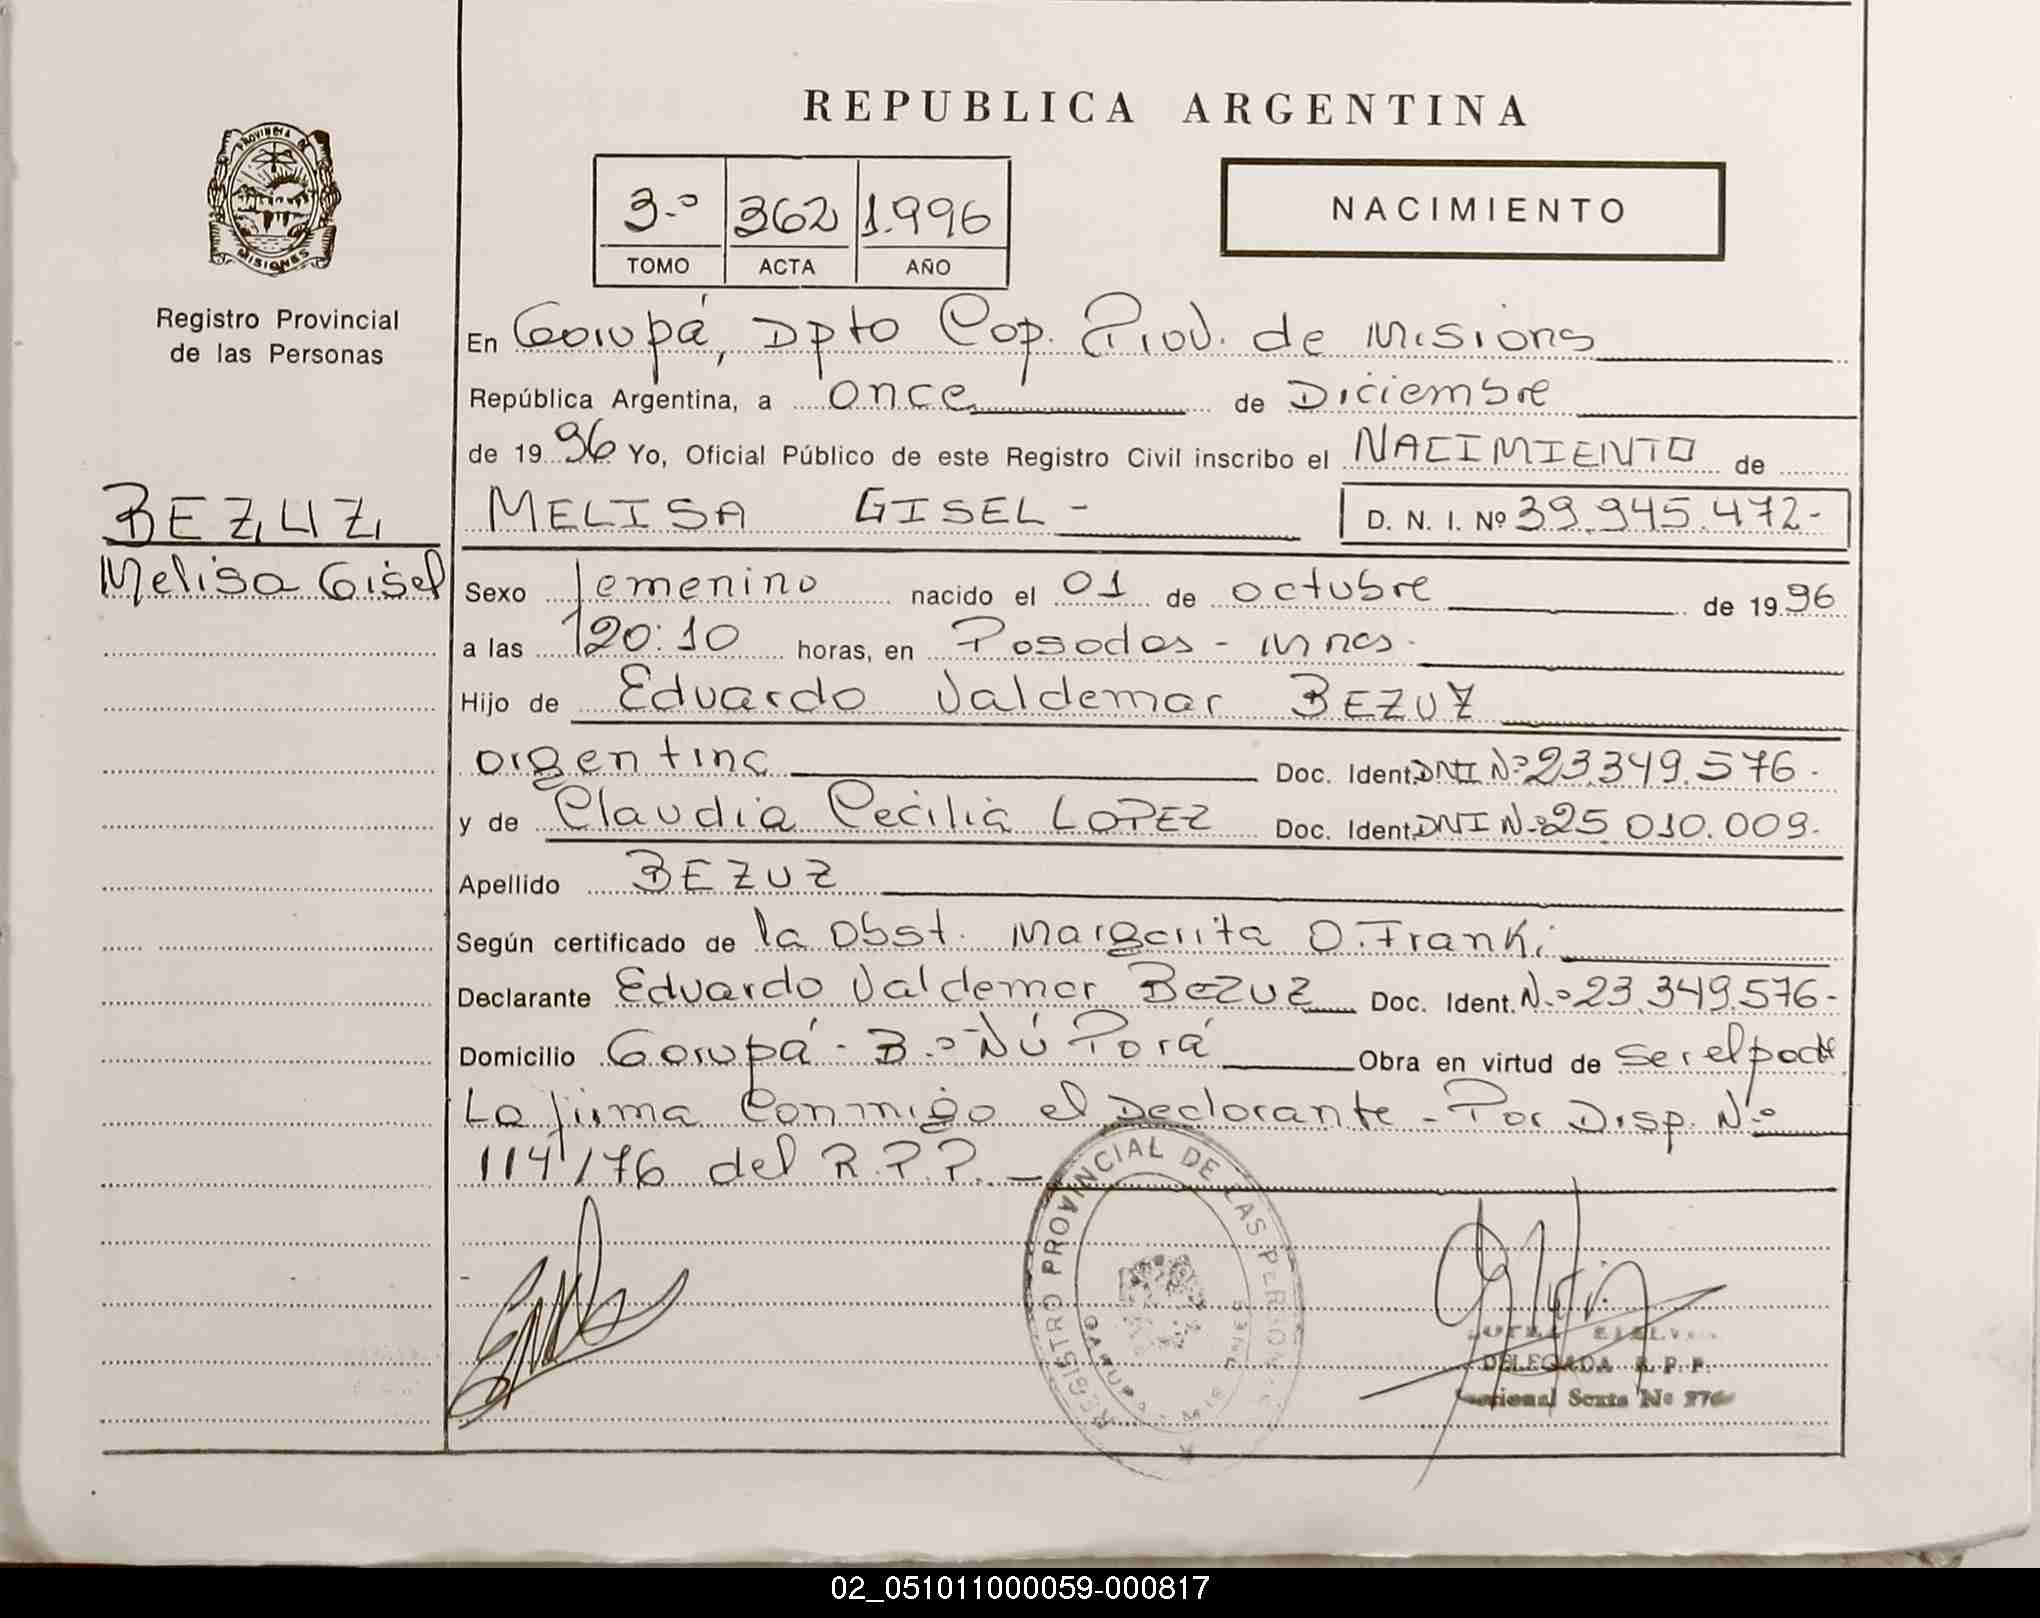 REPUBLICA ARGENTINA
PROVINCIA DE
MISIONES
Registro Provincial
de las Personas
3.º 362 1.996
TOMO ACTA AÑO
NACIMIENTO
En Garupá, Dpto Cap. Prov. de Misiones
República Argentina, a once de Diciembre
de 19 96 Yo, Oficial Público de este Registro Civil inscribo el NACIMIENTO de
BEZUZ
Melisa Gisel
MELISA GISEL - D. N. I. Nº 39.945.472-
Sexo femenino nacido el 01 de octubre de 19 96
a las 20:10 horas, en Posadas - Mnes.
Hijo de Eduardo Valdemar BEZUZ
argentina Doc. Ident. DNI Nº 23.349.576.
y de Claudia Cecilia LOPEZ Doc. Ident. DNI Nº 25.010.009.
Apellido BEZUZ
Según certificado de la Obst. Margarita O. Franki
Declarante Eduardo Valdemar BEZUZ Doc. Ident. N.º 23.349.576-
Domicilio Garupá - B.º Ñú Porá Obra en virtud de ser el padre
La firma conmigo el Declarante - Por Disp. Nº
114/76 del R.P.P. -
REGISTRO PROVINCIAL DE LAS PERSONAS
GARUPA MISIONES
DELEGADA R. P. P.
Seccional Sexta Nº
02_051011000059-000817